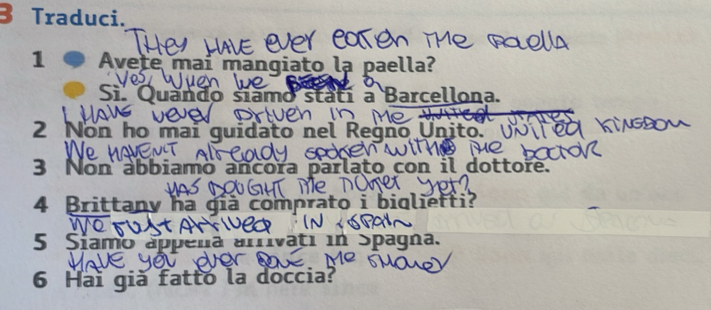 3 Traduci.
THEY HAVE EVER EATEN THE PAELLA
1 Avete mai mangiato la paella?
Yes, WHEN WE a
Sì. Quando siamo stati a Barcellona.
I HAVE never Driven IN THE United States UNITED KINGDOM
2 Non ho mai guidato nel Regno Unito.
We HAVEN'T Already spoken with THE DOCTOR
3 Non abbiamo ancora parlato con il dottore.
HAS BOUGHT THE TICKET yet?
4 Brittany ha già comprato i biglietti?
WE JUST ARRIVED IN SPAIN
5 Siamo appena arrivati in Spagna.
HAVE YOU ever THE SHOWER
6 Hai già fatto la doccia?